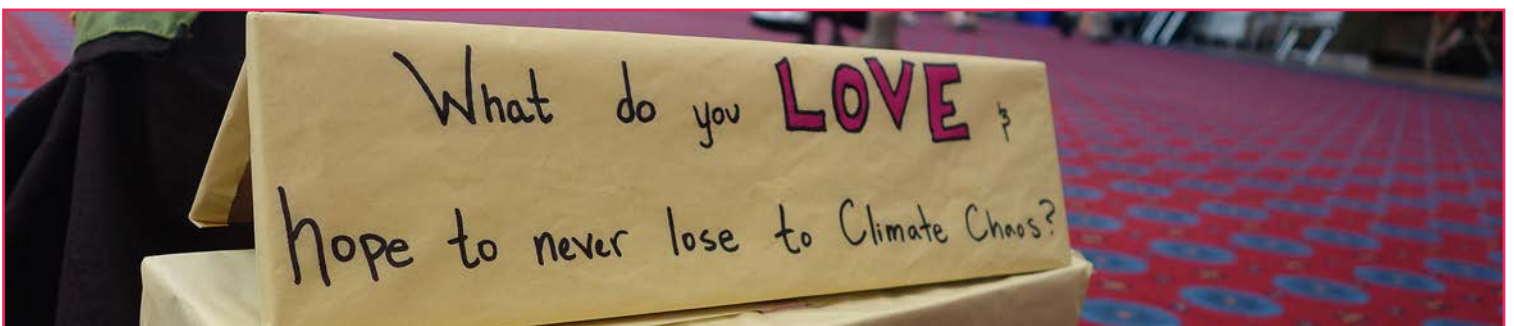 What do you LOVE &
hope to never lose to Climate Chaos?